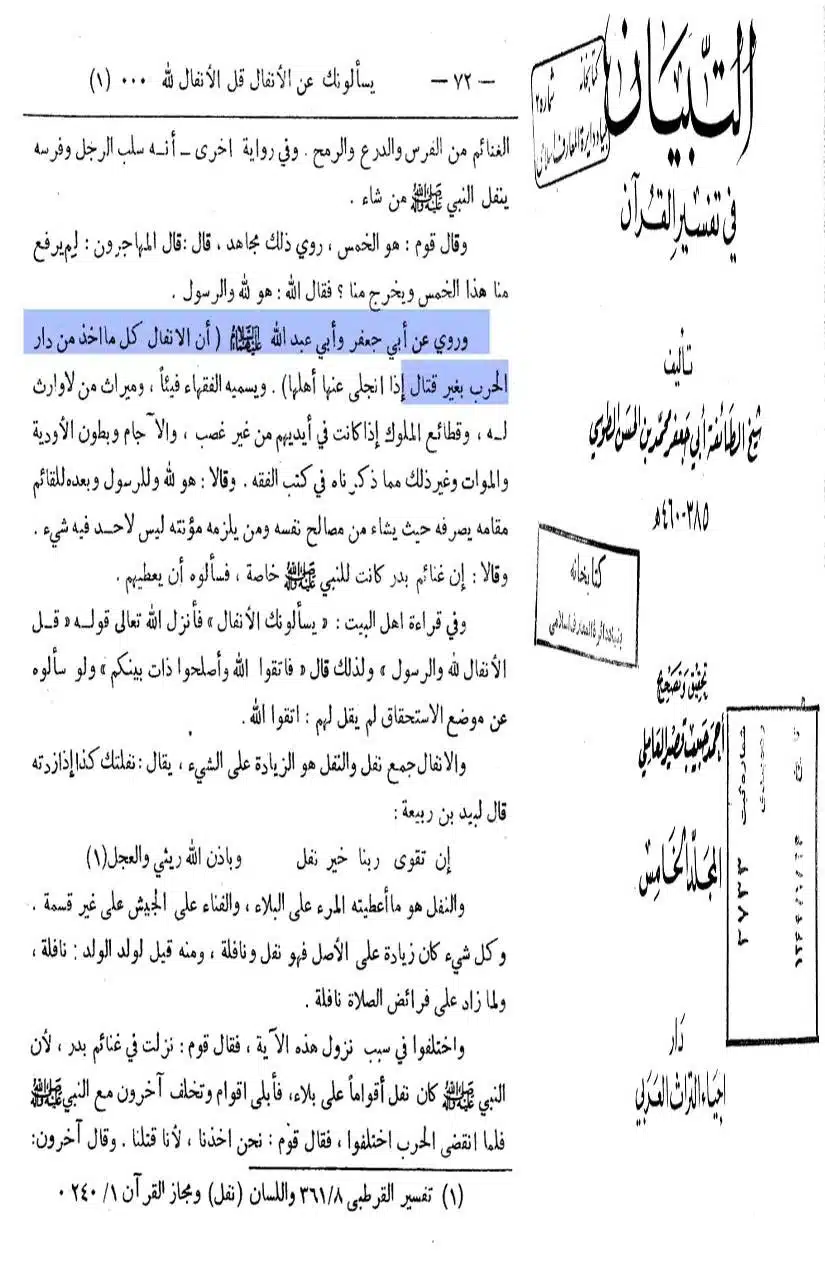 التبيان
في تفسير القرآن
تأليف
شيخ الطائفة أبي جعفر محمد بن الحسن الطوسي
٣٨٥-٤٦٠هـ
تحقيق وتصحيح
أحمد حبيب قصير العاملي
المجلد الخامس
دار
احياء التراث العربي
كتابخانه
شماره
كتابخانه
شماره ثبت
٣٧٣٣
— ٧٢ — يسألونك عن الأنفال قل الأنفال لله ٠٠٠ (١)
الغنائم من الفرس والدرع والرمح . وفي رواية اخرى ــ أنـه سلب الرجل وفرسه
ينفل النبي ﷺ من شاء .
وقال قوم : هو الخمس ، روي ذلك مجاهد ، قال :قال المهاجرون : لم يرفع
منا هذا الخمس ويخرج منا ؟ فقال الله : هو لله والرسول .
وروي عن أبي جعفر وأبي عبد الله ( أن الانفال كل مااخذ من دار
الحرب بغير قتال إذا انجلى عنها أهلها) . ويسميه الفقهاء فيئاً ، وميراث من لاوارث
لـه ، وقطائع الملوك إذا كانت في أيديهم من غير غصب ، والآجام وبطون الأودية
والموات وغير ذلك مما ذكرناه في كتب الفقه . وقالا : هو لله وللرسول وبعده للقائم
مقامه يصرفه حيث يشاء من مصالح نفسه ومن يلزمه مؤنته ليس لاحـد فيه شيء .
وقالا : إن غنائم بدر كانت للنبي ﷺ خاصة ، فسألوه أن يعطيهم .
وفي قراءة اهل البيت : « يسألونك الأنفال » فأنزل الله تعالى قولـه « قـل
الأنفال لله والرسول » ولذلك قال « فاتقوا الله وأصلحوا ذات بينكم » ولو سألوه
عن موضع الاستحقاق لم يقل لهم : اتقوا الله .
والانفال جمع نفل والنفل هو الزيادة على الشيء ، يقال : نفلتك كذا إذا زدته
قال لبيد بن ربيعة :
إن تقوى ربنا خير نفل وباذن الله ريثي والعجل(١)
والنفل هو ماأعطيته المرء على البلاء ، والفناء على الجيش على غير قسمة .
وكل شيء كان زيادة على الأصل فهو نفل ونافلة ، ومنه قيل لولد الولد : نافلة ،
ولما زاد على فرائض الصلاة نافلة .
واختلفوا في سبب نزول هذه الآية ، فقال قوم : نزلت في غنائم بدر ، لأن
النبي ﷺ كان نفل أقواماً على بلاء، فأبلى اقوام وتخلف آخرون مع النبي ﷺ
فلما انقضى الحرب اختلفوا ، فقال قوم : نحن اخذنا ، لأنا قتلنا . وقال آخرون:
(١) تفسير القرطبي ٣٦١/٨ واللسان (نفل) ومجاز القرآن ١/ ٢٤٠ ٠